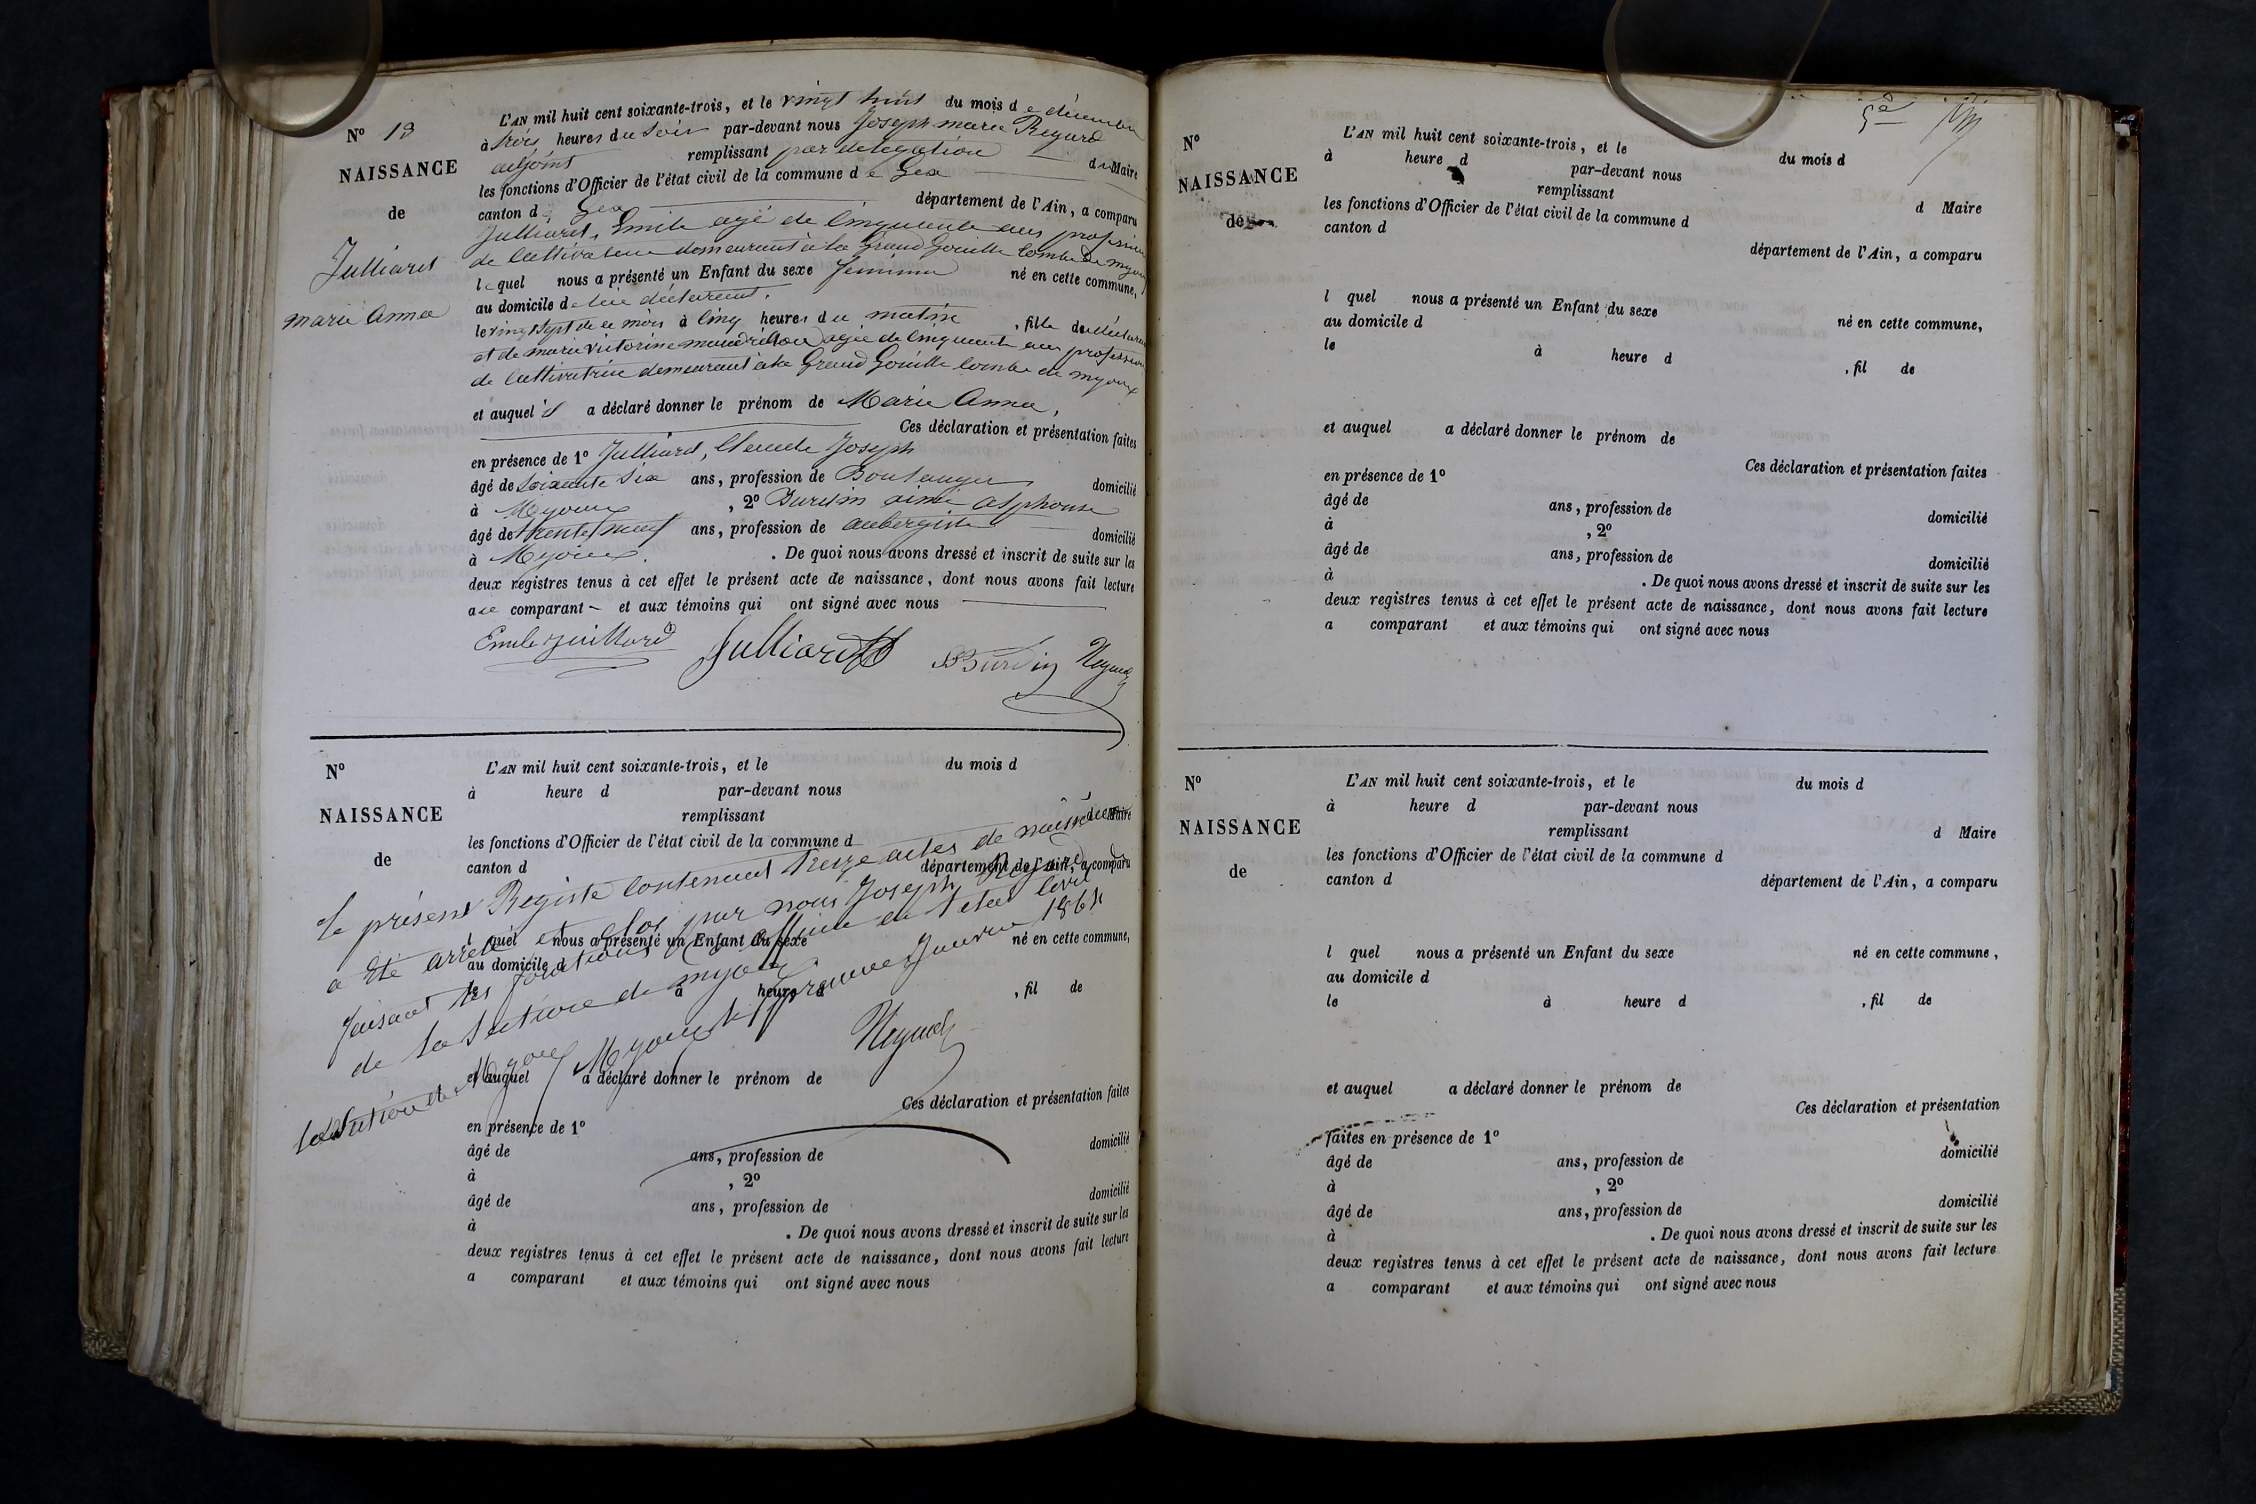 N° 13
NAISSANCE
de
Julliard
marie Anna
L'AN mil huit cent soixante-trois, et le vingt huit du mois de décembre
à trois heures du soir par-devant nous Joseph marie Regard
adjoint remplissant par délégation du Maire
les fonctions d'Officier de l'état civil de la commune de Gex
canton de Gex département de l'Ain, a comparu
Julliard, Emile agé de Cinquante ans profession
de Cultivateur demeurant à la Grand Gouille Combe de myoux
lequel nous a présenté un Enfant du sexe féminin né en cette commune,
au domicile de lui déclarant,
le vingt Sept de ce mois à Cinq heures du matin, fille du déclarant
et de marie victorine agée de Cinquante ans profession
de Cultivatrice demeurant à la Grand Gouille Combe de myoux
et auquel il a déclaré donner le prénom de Marie Anna,
Ces déclaration et présentation faites
en présence de 1° Julliard, Claude Joseph
âgé de Soixante Six ans, profession de Boulanger domicilié
à Myoux, 2° Burdin aimé alphonse
âgé de trente neuf ans, profession de aubergiste domicilié
à Myoux. De quoi nous avons dressé et inscrit de suite sur les
deux registres tenus à cet effet le présent acte de naissance, dont nous avons fait lecture
au comparant et aux témoins qui ont signé avec nous
Emile Juillard Julliard Burdin Regard
N°
NAISSANCE
de
L'AN mil huit cent soixante-trois, et le du mois d
à heure d par-devant nous
remplissant d Maire
les fonctions d'Officier de l'état civil de la commune d
canton d département de l'Ain, a comparu
l quel nous a présenté un Enfant du sexe né en cette commune,
au domicile d
le à heure d , fil de
et auquel a déclaré donner le prénom de
Ces déclaration et présentation faites
en présence de 1°
âgé de ans, profession de domicilié
à , 2°
âgé de ans, profession de domicilié
à . De quoi nous avons dressé et inscrit de suite sur les
deux registres tenus à cet effet le présent acte de naissance, dont nous avons fait lecture
a comparant et aux témoins qui ont signé avec nous
le présent Registre Contenant treize actes de naissance
a été arrêté et clos par nous Joseph Regard
faisant les fonctions d'officier de l'état Civil
de la Section de myoux
la Section de Myoux Myoux le premier Janvier 1864
Regard
5e
N°
NAISSANCE
de
L'AN mil huit cent soixante-trois, et le du mois d
à heure d par-devant nous
remplissant d Maire
les fonctions d'Officier de l'état civil de la commune d
canton d département de l'Ain, a comparu
l quel nous a présenté un Enfant du sexe né en cette commune,
au domicile d
le à heure d , fil de
et auquel a déclaré donner le prénom de
Ces déclaration et présentation faites
en présence de 1°
âgé de ans, profession de domicilié
à , 2°
âgé de ans, profession de domicilié
à . De quoi nous avons dressé et inscrit de suite sur les
deux registres tenus à cet effet le présent acte de naissance, dont nous avons fait lecture
a comparant et aux témoins qui ont signé avec nous
N°
NAISSANCE
de
L'AN mil huit cent soixante-trois, et le du mois d
à heure d par-devant nous
remplissant d Maire
les fonctions d'Officier de l'état civil de la commune d
canton d département de l'Ain, a comparu
l quel nous a présenté un Enfant du sexe né en cette commune,
au domicile d
le à heure d , fil de
et auquel a déclaré donner le prénom de
Ces déclaration et présentation
faites en présence de 1°
âgé de ans, profession de domicilié
à , 2°
âgé de ans, profession de domicilié
à . De quoi nous avons dressé et inscrit de suite sur les
deux registres tenus à cet effet le présent acte de naissance, dont nous avons fait lecture
a comparant et aux témoins qui ont signé avec nous